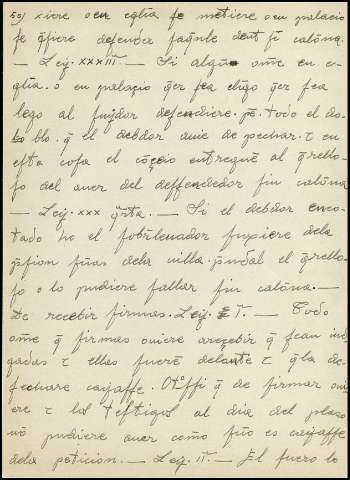 50) xiere o en eglia se metiere o en palacio
se q̄siere defender saq̄nle dent sī calōna.
— Ley. XXXIII. — Si algūo ome en e-
glia. o en palacio q̄er sea clīgo q̄er sea
lego al fuydor defendiere. pē. todo el do-
blo. q̄ el debdor auie de pechar. τ en
esta cosa el cōçeio entregue al q̄rello-
so del auer del deffendedor sin calōna
— Ley. XXX q̄rta. — Si el debdor enco-
tado he el sobreleuador fuxiere dela
p̄sion fūas dela villa. p̄ndal el q̄rello-
so o lo pudiere fallar sin calōna. —
De recebir firmas. Ley. I. — Todo
ome q̄ firmas ouiere areçebir q̄ sean iu-
gadas τ ellas fuerē delante τ q̄la de-
sechare cayasse. Otossi q̄ de firmar oui-
ere τ los testigos al dia del plazo
nō pudiere auer como fūo es cayasse
dela peticion. — Ley. II. — El fuero lo